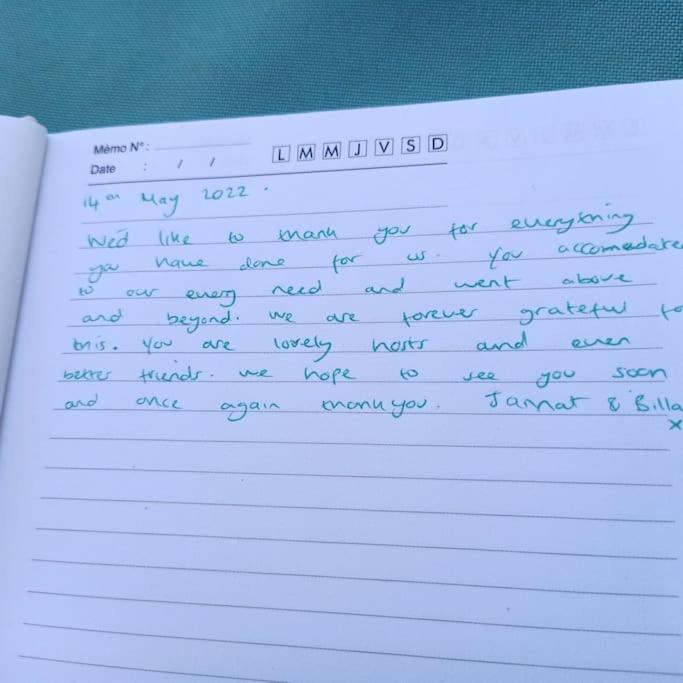 Mémo N° :
Date : / /
L M M J V S D
14th May 2022.
We'd like to thank you for everything
you have done for us. You accomedate
to our every need and went above
and beyond. We are forever grateful fo
this. You are lovely hosts and even
better friends. We hope to see you soon
and once again thankyou. Jannat & Billa
x